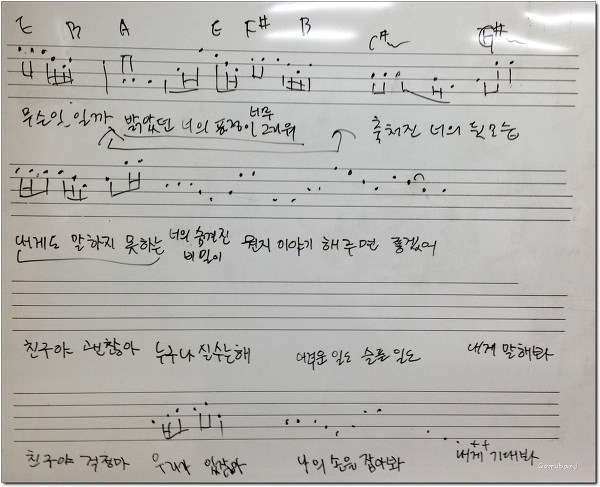 E B A E F# B C#m G#m
무슨일 일까 밝았던 너의 표정이 너무 그리워 축 처진 너의 뒷모습
내게도 말하지 못하는 너의 숨겨진 비밀이 뭔지 이야기 해주면 좋겠어
친구야 괜찮아 누구나 실수는해 어려운 일도 슬픈 일도 내게 말해봐
친구야 걱정마 우리가 있잖아 나의 손을 잡아봐 내게 기대봐